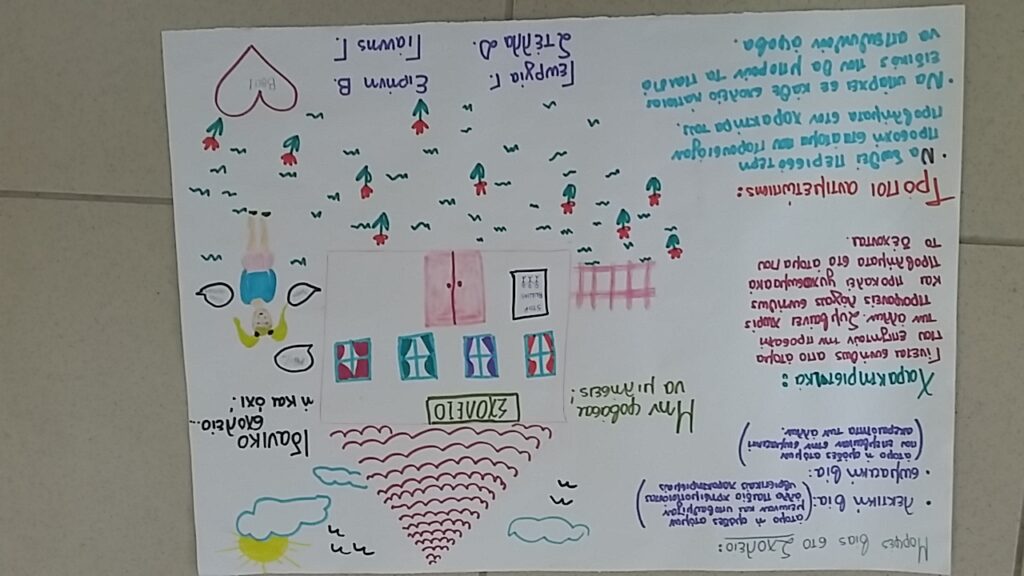 Μορφές βίας στο Σχολείο:
• Λεκτική βία:
άτομο ή ομάδες ατόμων
μειώνουν και υποβαθμίζουν
άλλο παιδί χρησιμοποιώντας
υβριστικούς χαρακτηρισμούς
• σωματική βία:
άτομο ή ομάδες ατόμων
που επεμβαίνουν στην σωματική
ακεραιότητα των άλλων.
Χαρακτηριστικά:
Γίνεται συνήθως από άτομα
που επιζητούν την προσοχή
των άλλων. Συμβαίνει χωρίς
προφανείς λόγους συνήθως
και προκαλεί ψυχοσωματικά
προβλήματα στο άτομο που
το δέχονται.
Τρόποι αντιμετώπισης:
• Να δωθεί περισσότερη
προσοχή στα άτομα που παρουσιάζουν
προβλήματα στον χαρακτήρα τους.
• Να υπάρχει σε κάθε σχολείο κάποιος
ειδικός που θα μπορούν τα παιδιά
να απευθυνθούν άφοβα.
Μην φοβάσαι
να μιλήσεις!
ΣΧΟΛΕΙΟ
STOP
BULLYING
Ιδανικό
σχολείο...
ή και όχι!
Γεωργία Γ.
Στέλλα Δ.
Ειρήνη Β.
Γιάννης Γ.